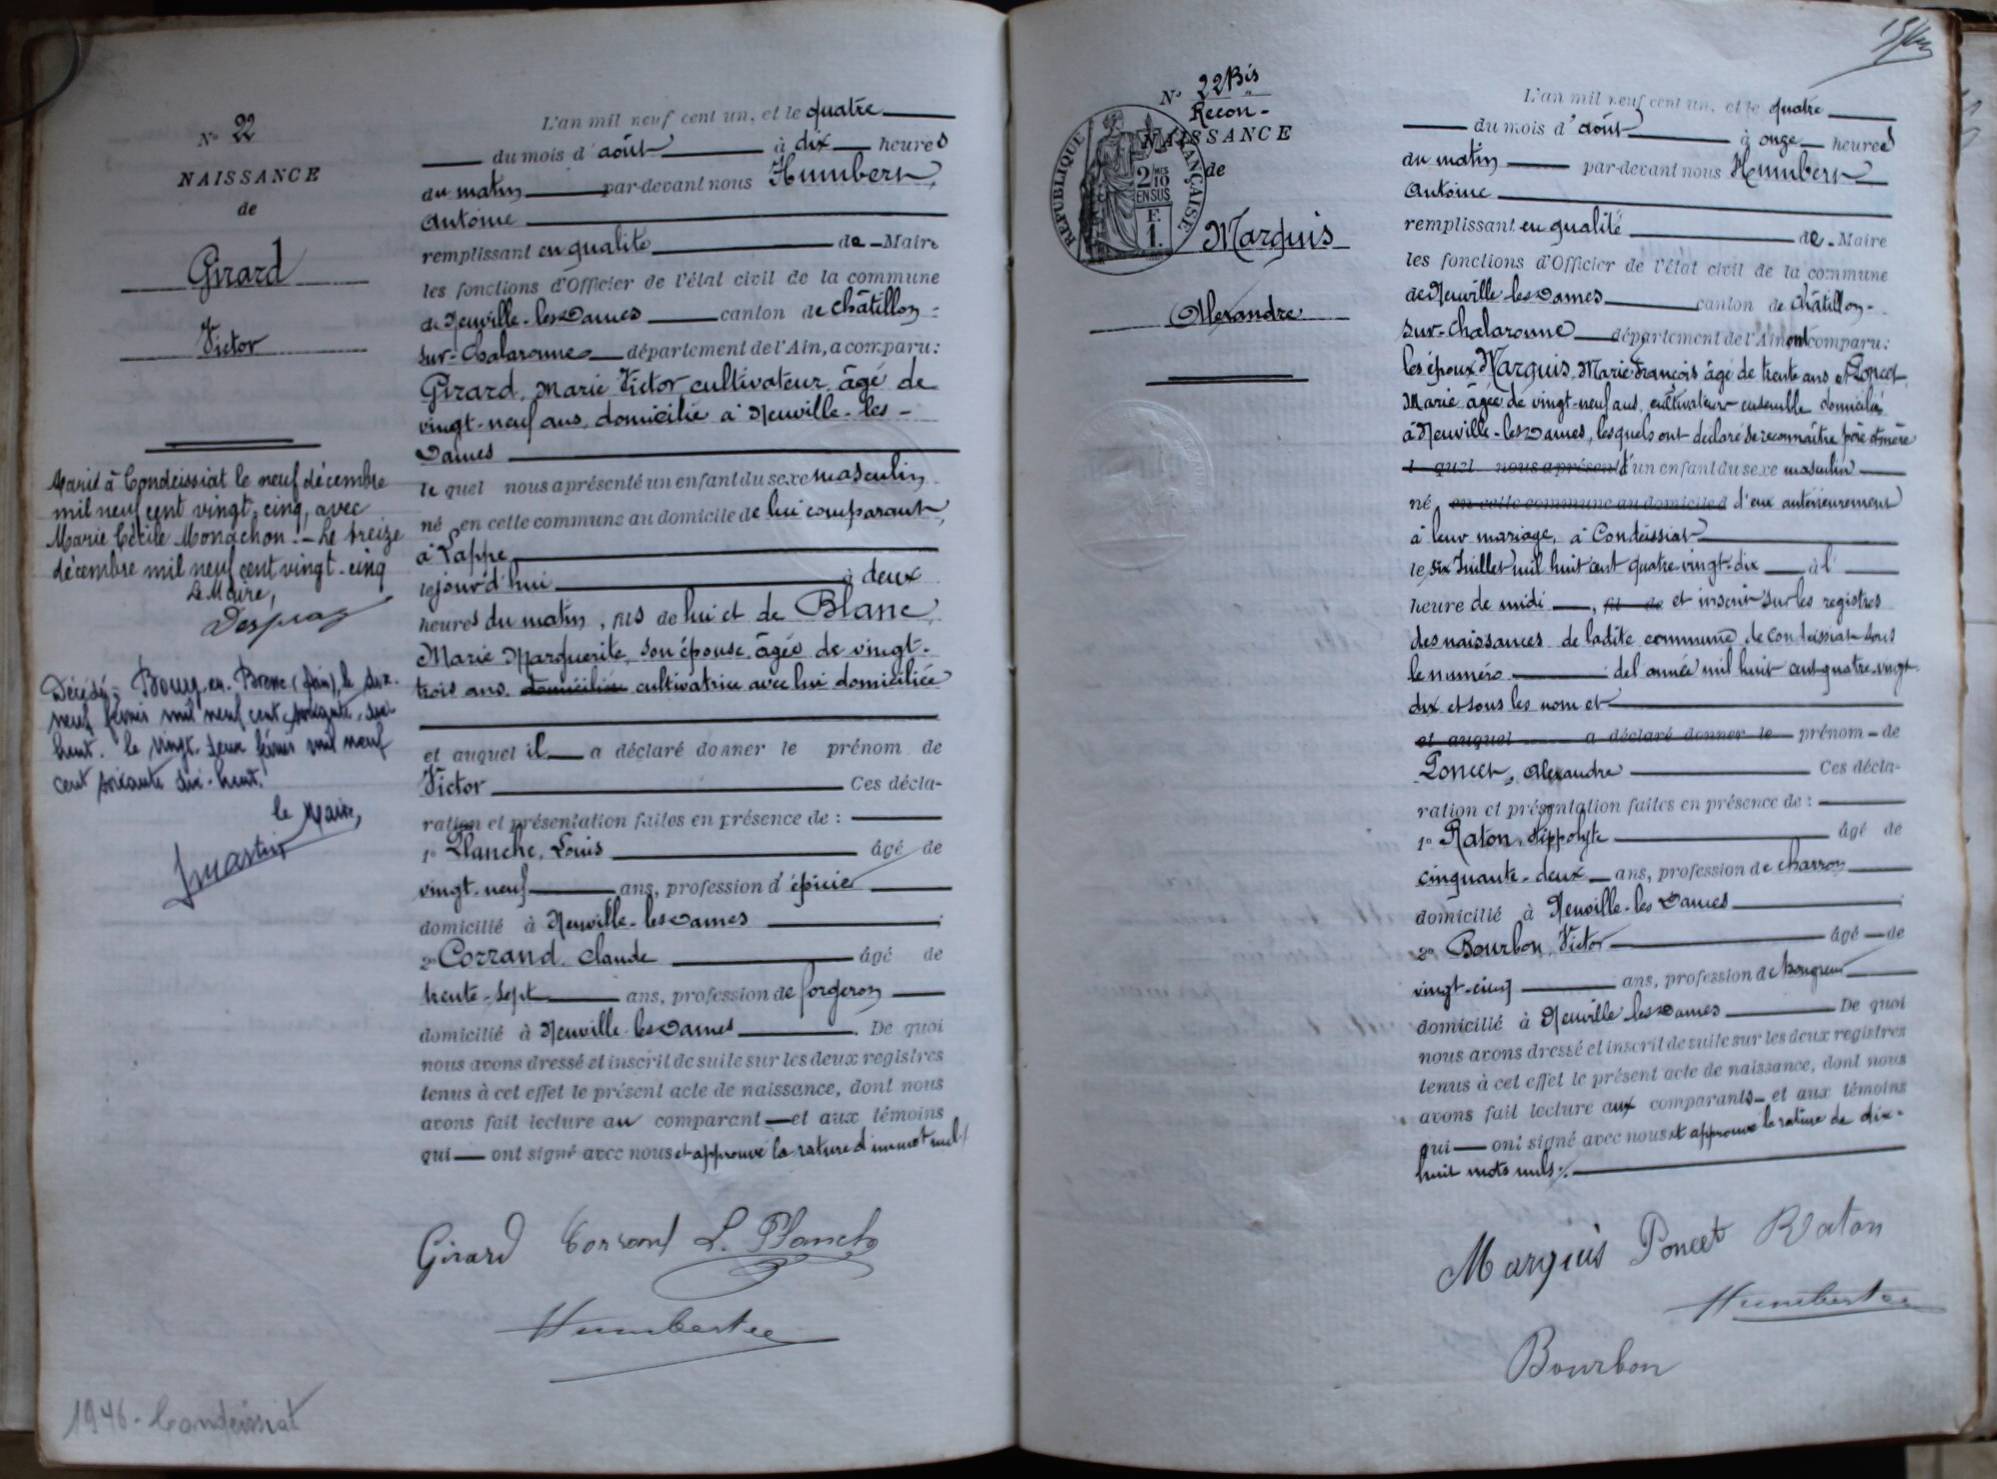 N° 22
NAISSANCE
de
Girard
Victor
Marié à Condeissiat le neuf décembre
mil neuf cent vingt-cinq, avec
Marie Cécile Monachon. - Le treize
décembre mil neuf cent vingt-cinq
Le Maire,
Décédé à Bourg-en-Bresse (Ain), le dix-
neuf février mil neuf cent soixante-six-
huit. le vingt-deux février mil neuf
cent soixante dix-huit.
le Maire,
1946 - Condeissiat
L'an mil neuf cent un, et le quatre
du mois d'août à dix heures
du matin par-devant nous Humbert,
Antoine
remplissant en qualité de Maire
les fonctions d'Officier de l'état civil de la commune
de Neuville-les-Dames canton de Châtillon-
sur-Chalaronne département de l'Ain, a comparu:
Girard, Marie Victor cultivateur, âgé de
vingt-neuf ans, domicilié à Neuville-les-
Dames
le quel nous a présenté un enfant du sexe masculin
né en cette commune au domicile de lui comparant,
à Lappe
le jourd'hui à deux
heures du matin, fils de lui et de Blanc
Marie Marguerite, son épouse, âgée de vingt-
trois ans, domiciliée cultivatrice avec lui domiciliée
et auquel il a déclaré donner le prénom de
Victor Ces décla-
ration et présentation faites en présence de :
1° Planche, Louis âgé de
vingt-neuf ans, profession d'épicier
domicilié à Neuville-les-Dames ;
2° Corrand, Claude âgé de
trente-sept ans, profession de forgeron
domicilié à Neuville-les-Dames. De quoi
nous avons dressé et inscrit de suite sur les deux registres
tenus à cet effet le présent acte de naissance, dont nous
avons fait lecture au comparant et aux témoins
qui ont signé avec nous et approuvé la rature d'un mot nul./.
Girard Corrand L. Planche
Humbert
N° 22 Bis
Recon-
NAISSANCE
de
RÉPUBLIQUE FRANÇAISE
2 MES
10
EN SUS
F.
1.
Marquis
Alexandre
L'an mil neuf cent un, et le quatre
du mois d'août à onze heures
du matin par-devant nous Humbert
Antoine
remplissant en qualité de Maire
les fonctions d'Officier de l'état civil de la commune
de Neuville-les-Dames canton de Châtillon-
sur-Chalaronne département de l'Ain ont comparu:
les époux Marquis, Marie François âgé de trente ans et Poncet,
Marie âgée de vingt-neuf ans, cultivateurs ensemble domiciliés
à Neuville-les-Dames, lesquels ont déclaré se reconnaître père et mère
l quel nous a présenté d'un enfant du sexe masculin
né, en cette commune au domicile d d'eux antérieurement
à leur mariage, à Condeissiat
le six Juillet mil huit cent quatre-vingt-dix à l'
heure de midi, fil de et inscrit sur les registres
des naissances de ladite commune de Condeissiat sous
le numéro de l'année mil huit cent quatre-vingt-
dix et sous les nom et
et auquel a déclaré donner le prénom de
Poncet, Alexandre Ces décla-
ration et présentation faites en présence de :
1° Raton, Hippolyte âgé de
cinquante-deux ans, profession de charron
domicilié à Neuville-les-Dames ;
2° Bourbon, Victor âgé de
vingt-cinq ans, profession de
domicilié à Neuville-les-Dames De quoi
nous avons dressé et inscrit de suite sur les deux registres
tenus à cet effet le présent acte de naissance, dont nous
avons fait lecture aux comparants et aux témoins
qui ont signé avec nous et approuvé la rature de dix-
huit mots nuls./.
Marquis Poncet Raton
Humbert
Bourbon